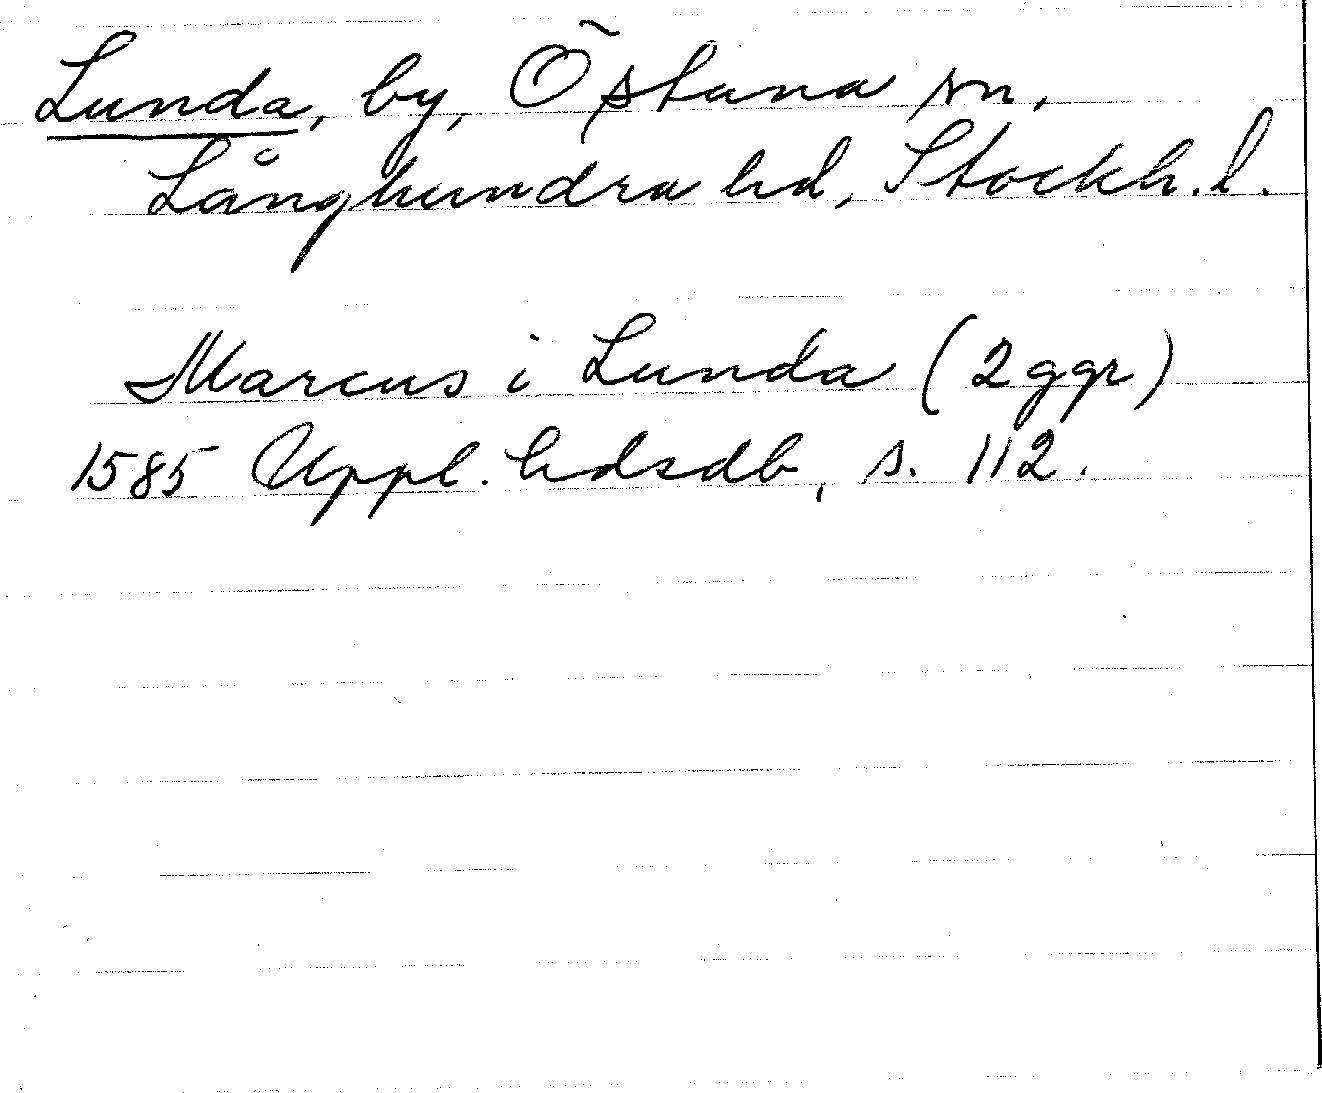 Lunda, by, Östuna sn,
Långhundra hd, Stockh. l.
Marcus i Lunda (2 ggr)
1585 Uppl. hdsdb, s. 112.